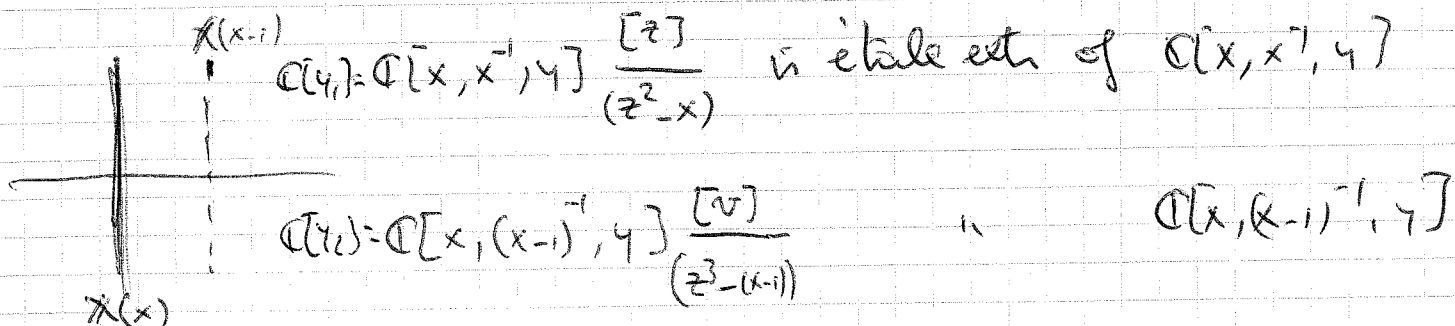 X(x-1)
ℂ[Y₁]=ℂ[x, x⁻¹, y] [z]/(z²-x) is étale ext. of ℂ[x, x⁻¹, y]
ℂ[Y₂]=ℂ[x, (x-1)⁻¹, y] [v]/(z³-(x-1)) " ℂ[x, (x-1)⁻¹, y]
X(x)